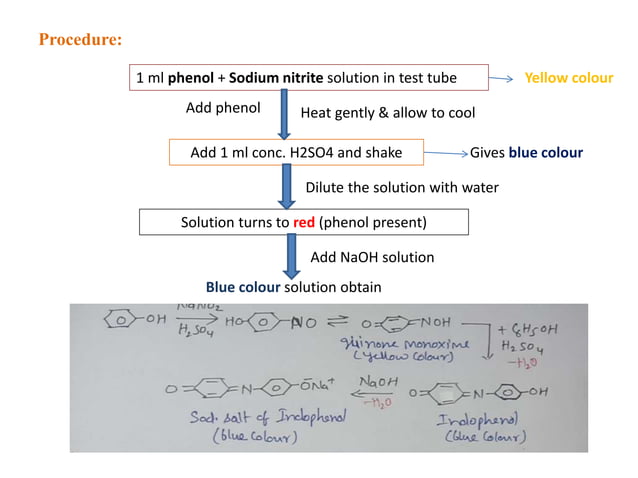 Procedure:
1 ml phenol + Sodium nitrite solution in test tube
Yellow colour
Add phenol
Heat gently & allow to cool
Add 1 ml conc. H2SO4 and shake
Gives blue colour
Dilute the solution with water
Solution turns to red (phenol present)
Add NaOH solution
Blue colour solution obtain
OH
NaNO2
H2SO4
HO
NO
O
NOH
quinone monoxime
(yellow colour)
+ C6H5OH
H2SO4
-H2O
O
N
ŌNa+
NaOH
-H2O
O
N
OH
Sod. salt of Indophenol
(blue colour)
Indophenol
(blue colour)